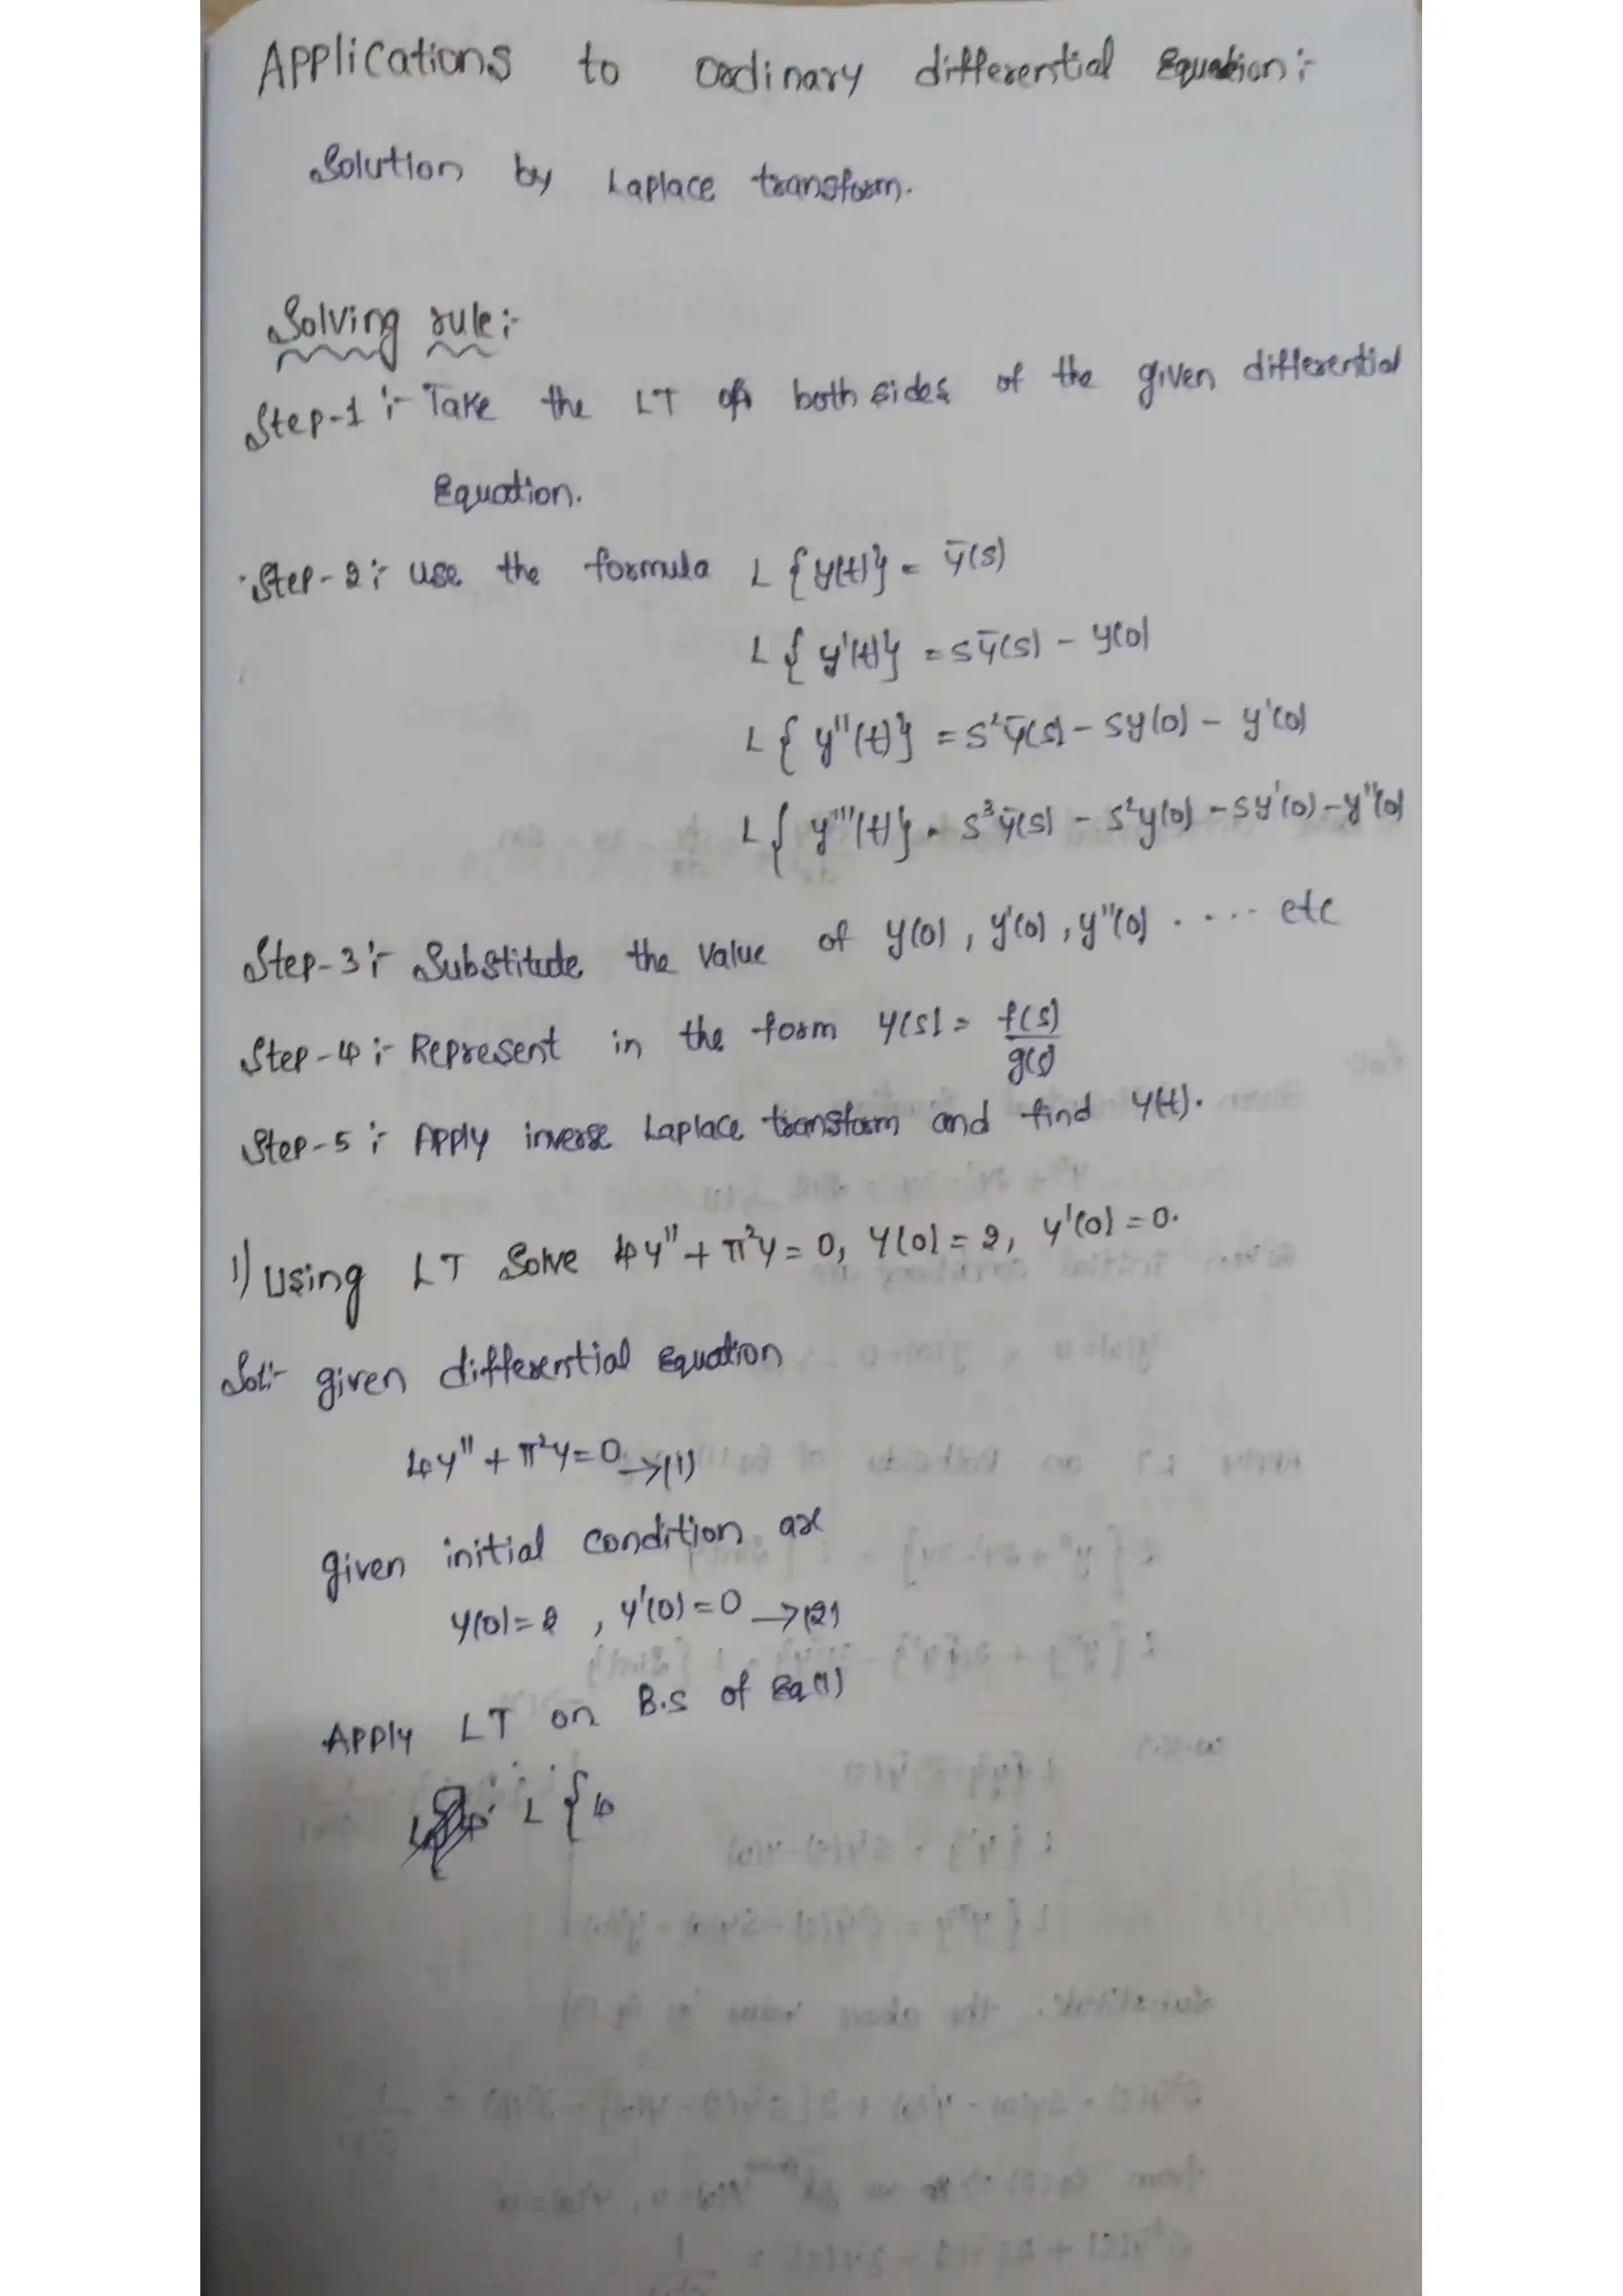 Applications to Ordinary differential Equation:-
Solution by Laplace transform.
Solving rule:-
Step-1:- Take the LT of both sides of the given differential
Equation.
Step-2:- use the formula L{y(t)} = ȳ(s)
L{y'(t)} = sȳ(s) - y(0)
L{y''(t)} = s²ȳ(s) - sy(0) - y'(0)
L{y'''(t)} = s³ȳ(s) - s²y(0) - sy'(0) - y''(0)
Step-3:- Substitute the value of y(0), y'(0), y''(0) ..... etc
Step-4:- Represent in the form y(s) = f(s)/g(s)
Step-5:- Apply inverse Laplace transform and find y(t).
1) Using LT Solve 4y'' + π²y = 0, y(0) = 2, y'(0) = 0.
Sol:- given differential Equation
4y'' + π²y = 0 →(1)
given initial condition are
y(0) = 2, y'(0) = 0 →(2)
Apply LT on B.S of Eq(1)
L{4